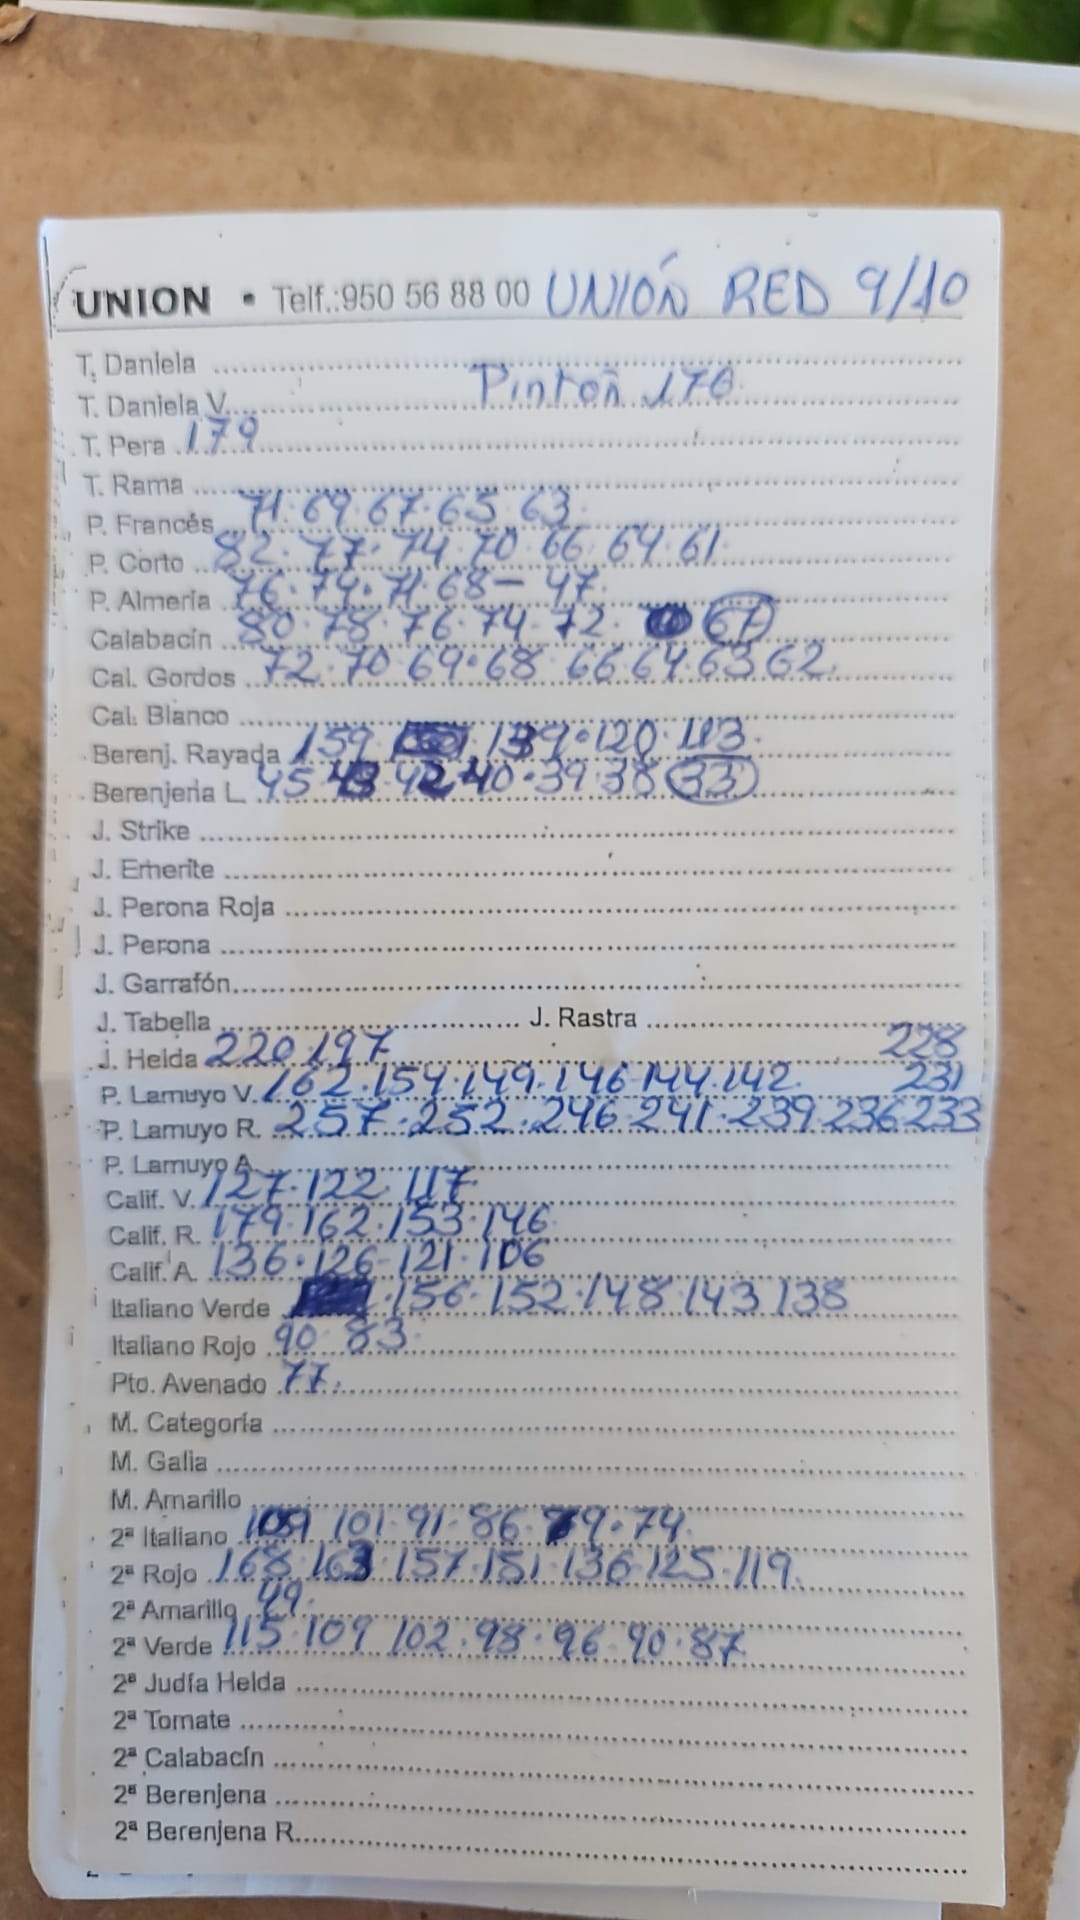 UNION • Telf.:950 56 88 00 UNIÓN RED 9/10
T. Daniela
T. Daniela V. Pintón 170
T. Pera 179
T. Rama
P. Francés 71·69·67·65·63
P. Corto 82·77·74·70·66·64·61
P. Almería 76·74·71·68-47
Calabacín 80·78·76·74·72· 67
Cal. Gordos 72·70·69·68·66 64 63 62
Cal. Blanco
Berenj. Rayada 159 139·120·113
Berenjena L. 45 43 42 40·39·38 33
J. Strike
J. Emerite
J. Perona Roja
J. Perona
J. Garrafón
J. Tabella J. Rastra
J. Helda 220·197 228
P. Lamuyo V. 162·154·149·146·144·142 231
P. Lamuyo R. 257·252·246 241·239 236 233
P. Lamuyo A.
Calif. V. 127·122·117
Calif. R. 179·162·153·146
Calif. A. 136·126-121·106
Italiano Verde 156·152·148·143 138
Italiano Rojo 90·83
Pto. Avenado 77
M. Categoría
M. Galia
M. Amarillo
2ª Italiano 109 101·91·86·79·74
2ª Rojo 168·163·157·151·136·125·119
2ª Amarillo 49
2ª Verde 115·109 102·98·96·90·87
2ª Judía Helda
2ª Tomate
2ª Calabacín
2ª Berenjena
2ª Berenjena R.